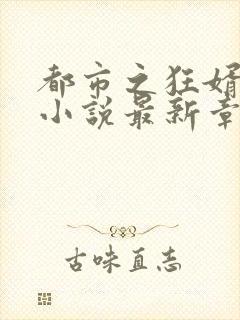 都市之狂婿
小说最新章
古味直志